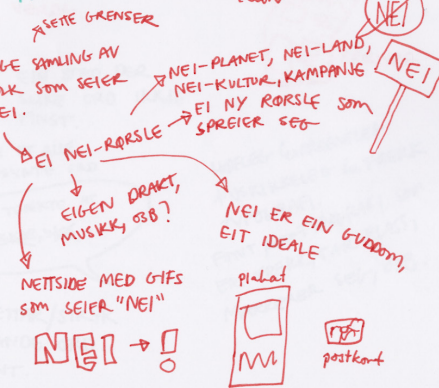 SETTE GRENSER
NEI
GE SAMLING AV
LK SOM SEIER
EI.
NEI-PLANET, NEI-LAND,
NEI-KULTUR, KAMPANJE
NEI
EI NY RØRSLE SOM
SPREIER SEG
EI NEI-RØRSLE
EIGEN DRAKT,
MUSIKK, OSB?
NEI ER EIN GUDDOM,
EIT IDEALE
NETTSIDE MED GIFS
SOM SEIER "NEI"
NEI → !
plakat
postkort